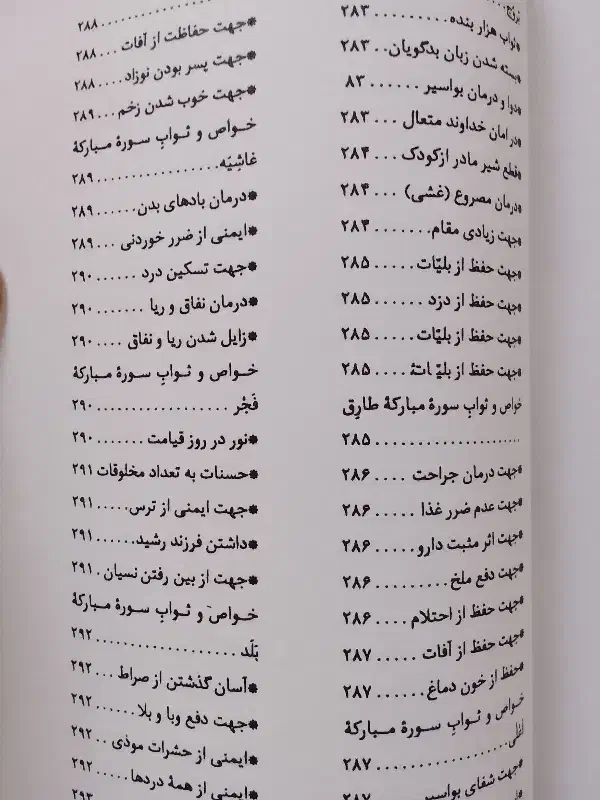 بروج
*ثواب هزار بنده ..... ۲۸۳
*بسته شدن زبان بدگویان.. ۲۸۳
*دوا و درمان بواسیر ...... ۸۳
*در امان خداوند متعال ... ۲۸۳
*قطع شیر مادر ازکودک ... ۲۸۴
*درمان مصروع (غشی) ... ۲۸۴
*جهت زیادی مقام....... ۲۸۴
*جهت حفظ از بلیّات ..... ۲۸۵
*جهت حفظ از دزد ...... ۲۸۵
*جهت حفظ از بلیّات ..... ۲۸۵
*جهت حفظ از بلیّاتۀ ..... ۲۸۵
خواص و ثوابِ سورۀ مبارکۀ طارِق
.................... ۲۸۵
*جهت درمان جراحت .... ۲۸۶
*جهت عدم ضرر غذا ..... ۲۸۶
*جهت اثر مثبت دارو..... ۲۸۶
*جهت دفع ملخ......... ۲۸۶
*جهت حفظ از احتلام .... ۲۸۶
*جهت حفظ از آفات ..... ۲۸۷
*حفظ از خون دماغ....... ۲۸۷
خواص و ثوابِ سورۀ مبارکۀ
اَعْلی................. ۲۸۷
*جهت شفای بواسیر..... ۲۸۷
.................... ۲۸۸
*جهت حفاظت از آفات ... ۲۸۸
*جهت پسر بودن نوزاد.... ۲۸۸
*جهت خوب شدن زخم... ۲۸۹
خواص و ثوابِ سورۀ مبارکۀ
غاشِیَه................. ۲۸۹
*درمان بادهای بدن...... ۲۸۹
*ایمنی از ضرر خوردنی ... ۲۸۹
*جهت تسکین درد ...... ۲۹۰
*درمان نفاق و ریا ....... ۲۹۰
*زایل شدن ریا و نفاق .... ۲۹۰
خواص و ثوابِ سورۀ مبارکۀ
فَجْر ................. ۲۹۰
*نور در روز قیامت ....... ۲۹۰
*حسنات به تعداد مخلوقات ۲۹۱
*جهت ایمنی از ترس..... ۲۹۱
*داشتن فرزند رشید...... ۲۹۱
*جهت از بین رفتن نسیان. ۲۹۱
خواص و ثوابِ سورۀ مبارکۀ
بَلَد .................. ۲۹۲
*آسان گذشتن از صراط ... ۲۹۲
*جهت دفع وبا و بلا...... ۲۹۲
*ایمنی از حشرات موذی .. ۲۹۲
*ایمنی از همۀ دردها..... ۲۹۲
۲۹۳